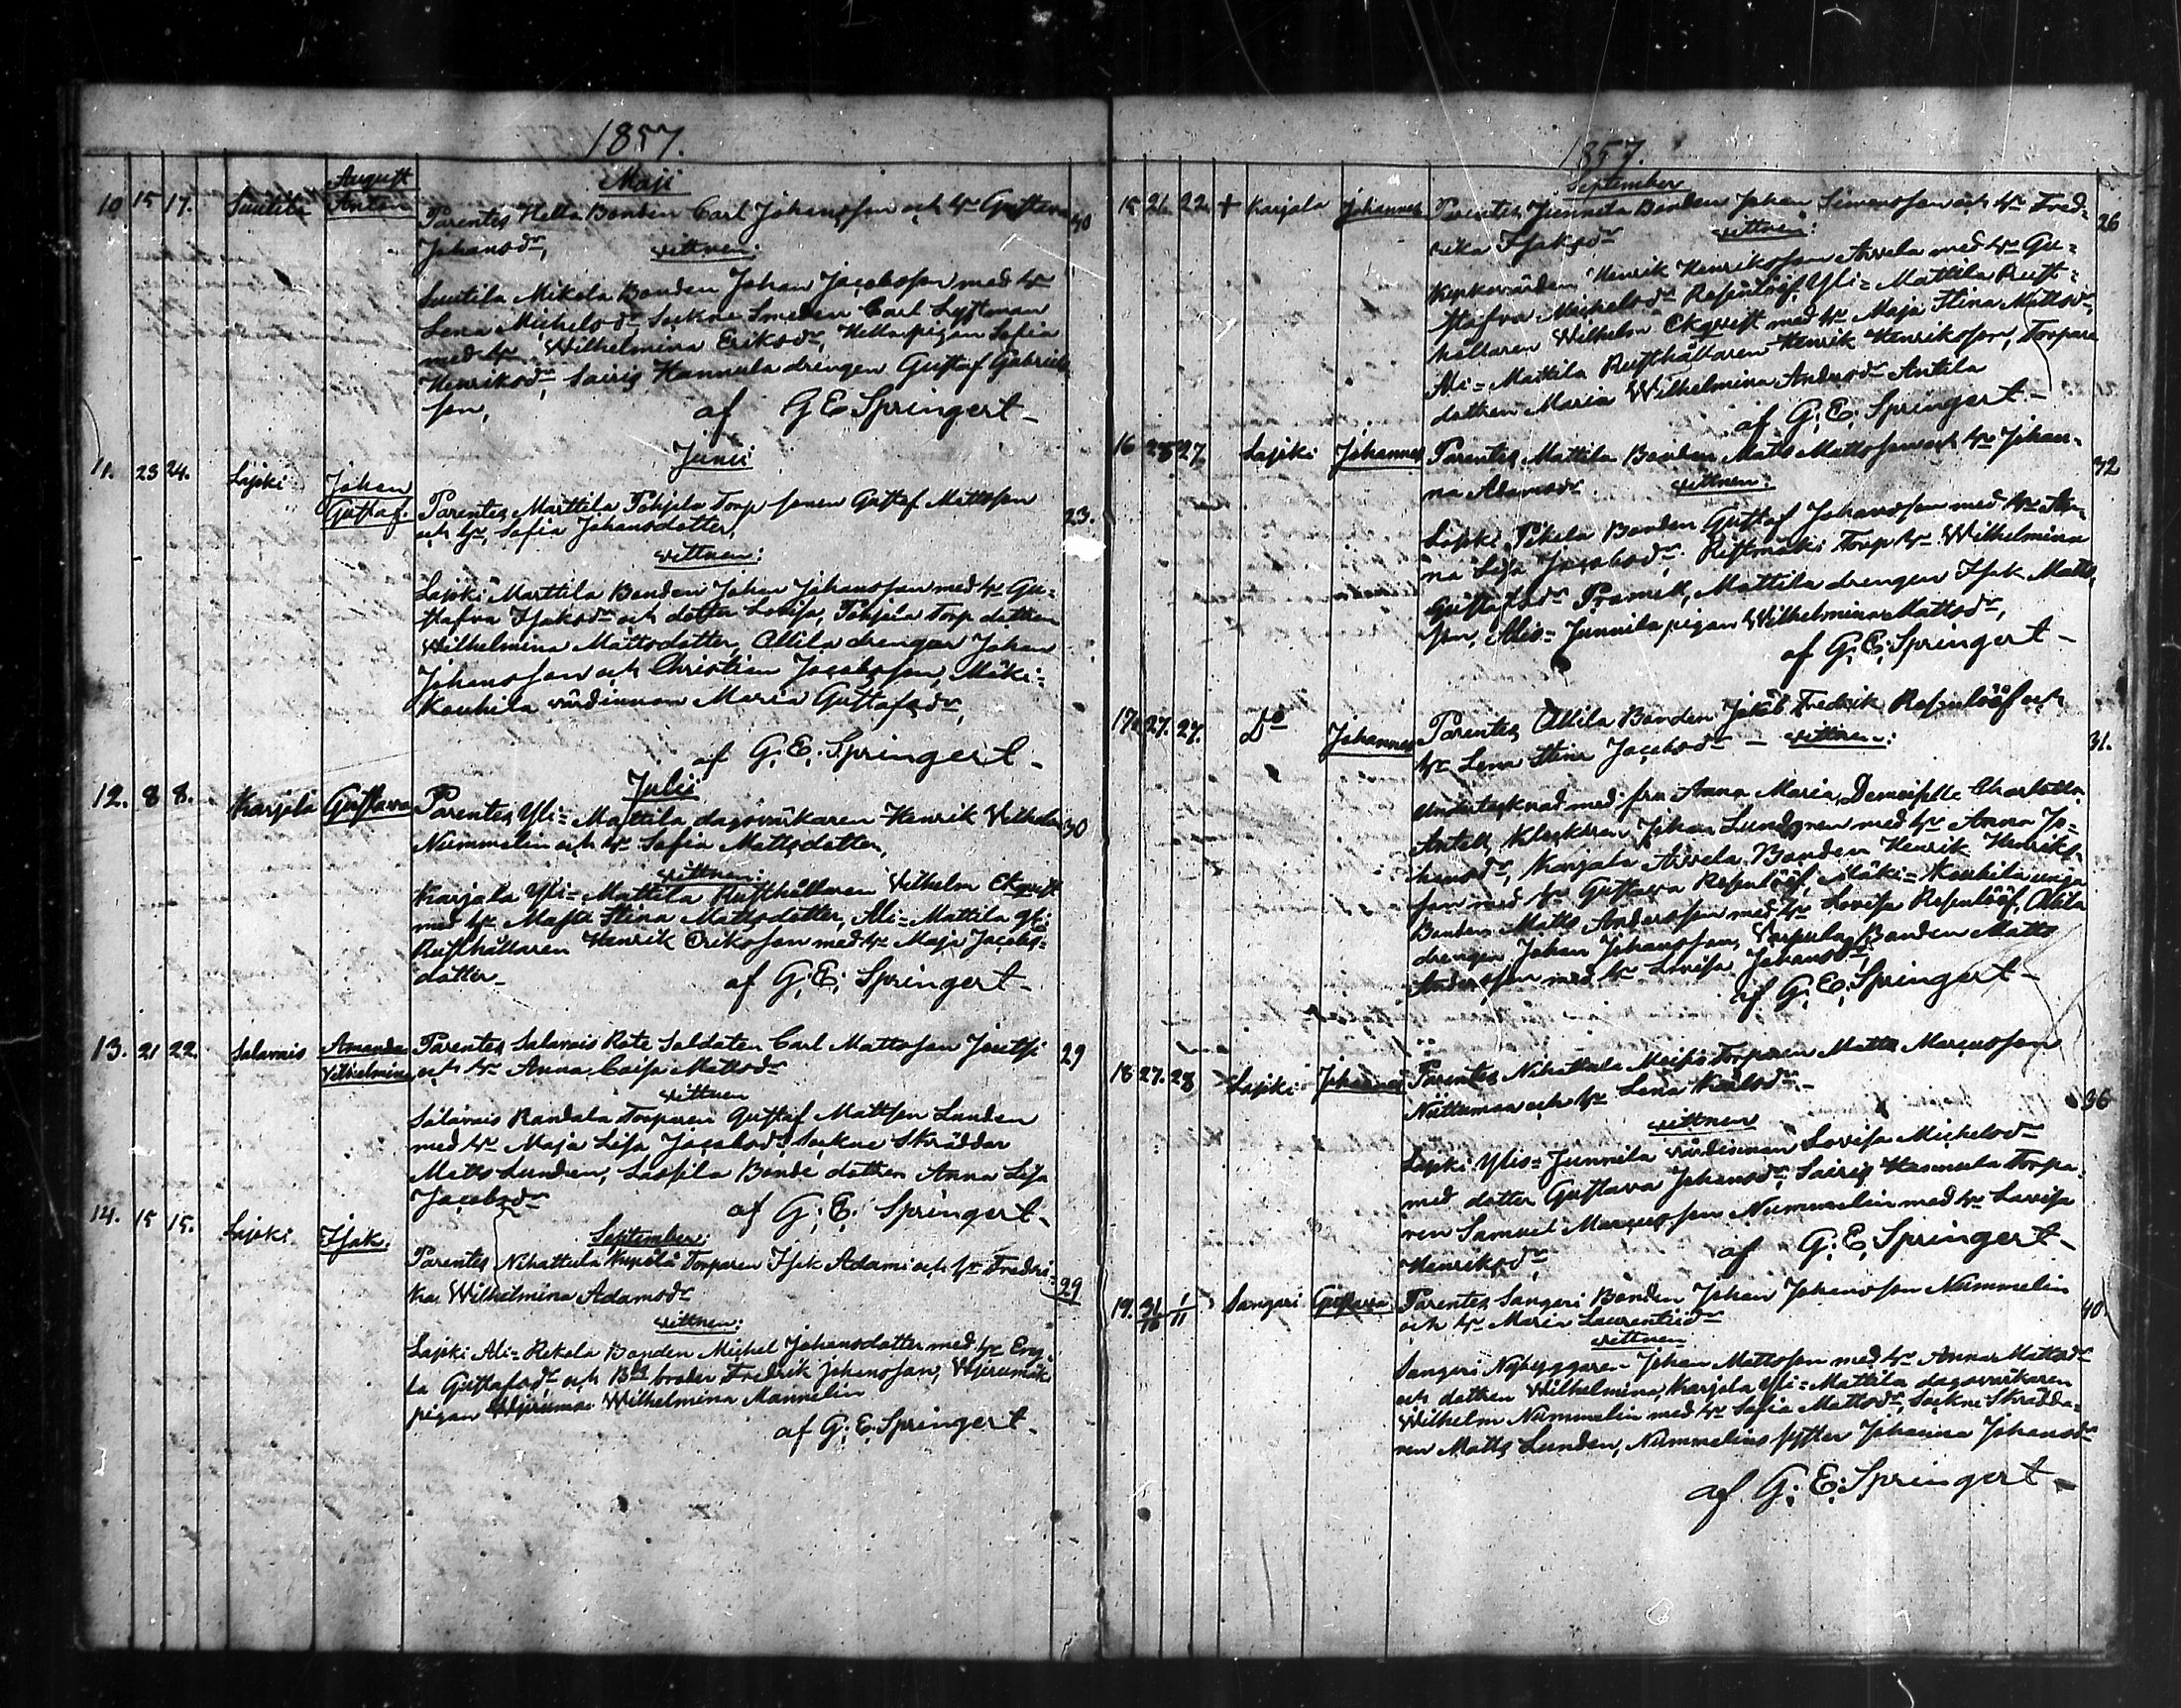 1857.
Maji
10 15 17. Suutila August Anton Parentes Hella Bonden Carl Johansson och hu Gustava 40
Johansdr, vittnen:
Suutila Mikola Bonden Johan Jacobsson med hu
Lena Michelsdr Sockne Smeden Carl Lystman
med hu Wilhelmina Eriksdr, Hella pigan Sofia
Henriksdr, Sairis Hannula drengen Gustaf Gabriels
son, af G E Springert
Junii
11. 23 24. Lajski Johan Gustaf. Parentes Marttila Pohjola Torp sonen Gustaf Mattsson 23.
och hu, Sofia Johansdotter,
vittnen:
Lajski Marttila Bonden Johan Johansson med hu Gu=
stafva Isaksdr och dotter Lovisa, Pohjola Torp dottren
Wilhelmina Mattsdotter, Ollila drengar Johan
Johansson och Christian Jacobsson, Mäki=
Kouhila värdinnan Maria Gustafsdr,
af G: E: Springert
Julii
12. 8 8. Karjala Gustava Parentes Yli=Mattila dagsverkaren Henrik Vilhelm 30
Nummelin och hu Sofia Mattsdotter,
vittnen:
Karjala Yli=Mattila Rusthållaren Vilhelm Ekqvist
med hu Maja Stina Mattsdotter, Ali=Mattila
Rusthållaren Henrik Eriksson med hu Maja Jacobs=
dotter af G: E: Springert
13. 21 22. Salavais Amanda Vilhelmina Parentes Salavais Rote Soldaten Carl Mattsson Joutsi 29
och hu Anna Caisa Mattsdr
vittnen
Salavais Randala Torparen Gustaf Mattsson Lunden
med hu Maja Lisa Jacobsdr, Sockne Skräddar
Matts Lunden, Lassila Bonde dottren Anna Lisa
Jacobsdr af G: E: Springert
September:
14. 15 15. Lajski Isak. Parentes Nihattula Torparen Isak Adami och hu Fredri= 29
ka Wilhelmina Adamsdr
vittnen:
Lajski Ali=Rekola Bonden Michel Johansdotter med hu Eva
Gustafsdr och Bd broder Fredrik Johansson,
pigan Wilhelmina Mannelin
af G: E: Springert
1857.
September
15 21. 22. + Karjala Johannes Parentes Junnila Bonden Johan Simonsson och hu Fred= 26
rika Isaksdr vittnen:
Kyrkovärden Henrik Henriksson Arvela med hu Gu=
stafva Michelsdr Rosenlööf, Yli=Mattila Rust=
hållaren Wilhelm Ekqvist med hu Maja Stina Mattsdr,
Ali=Mattila Rusthållaren Henrik Henriksson, Torpare
dottren Maria Wilhelmina Andersdr Antila
af G: E: Springert
16 25 27. Lajski Johannes Parentes Mattila Bonden Matts Mattsson och hu Johan= 32
na Adamsdr vittnen:
Lajski Pikola Bonden Gustaf Johansson med hu An=
na Lisa Jacobsdr, Ristimäki Torp hu Wilhelmina
Gustafsdr Pramell, Mattila drengen Isak Matts=
son, Alis=Junnila pigan Wilhelmina Mattsdr,
af G: E: Springert
17. 27. 27. Do Johannes Parentes Ollila Bonden Jakob Fredrik Rosenlööf och 31.
hu Lena Stina Jacobsdr vittnen:
undertecknad med fru Anna Maria, Demoiselle Charlotta
Antell, Klockaren Johan Lundgren med hu Anna Jo=
hansdr, Karjala Arvela Bonden Henrik Henriks=
son med hu Gustava Rosenlööf, Mäki=Kouhila unga
Bonden Matts Andersson med hu Lovisa Rosenlööf, Ollila
drengen Johan Johansson, Bonden Matts
Andersson med hu Lovisa Johansdr,
af G: E: Springert
18 27. 28 Lajski Johannes Parentes Nihattula Torparen Matts Marcusson 36
och hu Lena Karlsdr
vittnen
Lajski Ylis=Junnila värdinnan Lovisa Michelsdr
med dotter Gustava Johansdr, Sairis Hannula Torpa=
ren Samuel Marcusson Nummelin med hu Lovisa
Henriksdr af G: E: Springert
19. 31/10 1/11 Sangari Gustava Parentes Sangari Bonden Johan Johansson Nummelin 40
och hu Maria Laurentiidr
vittnen
Sangari Nybyggaren Johan Mattsson med hu Anna Mattsdr
och dottren Wilhelmina, Karjala Yli=Mattila dagsverkaren
Wilhelm Nummelin med hu Sofia Mattsdr, Sockne Skrädda=
ren Matts Lunden, Nummelins syster Johanna Johansdr
af G: E: Springert